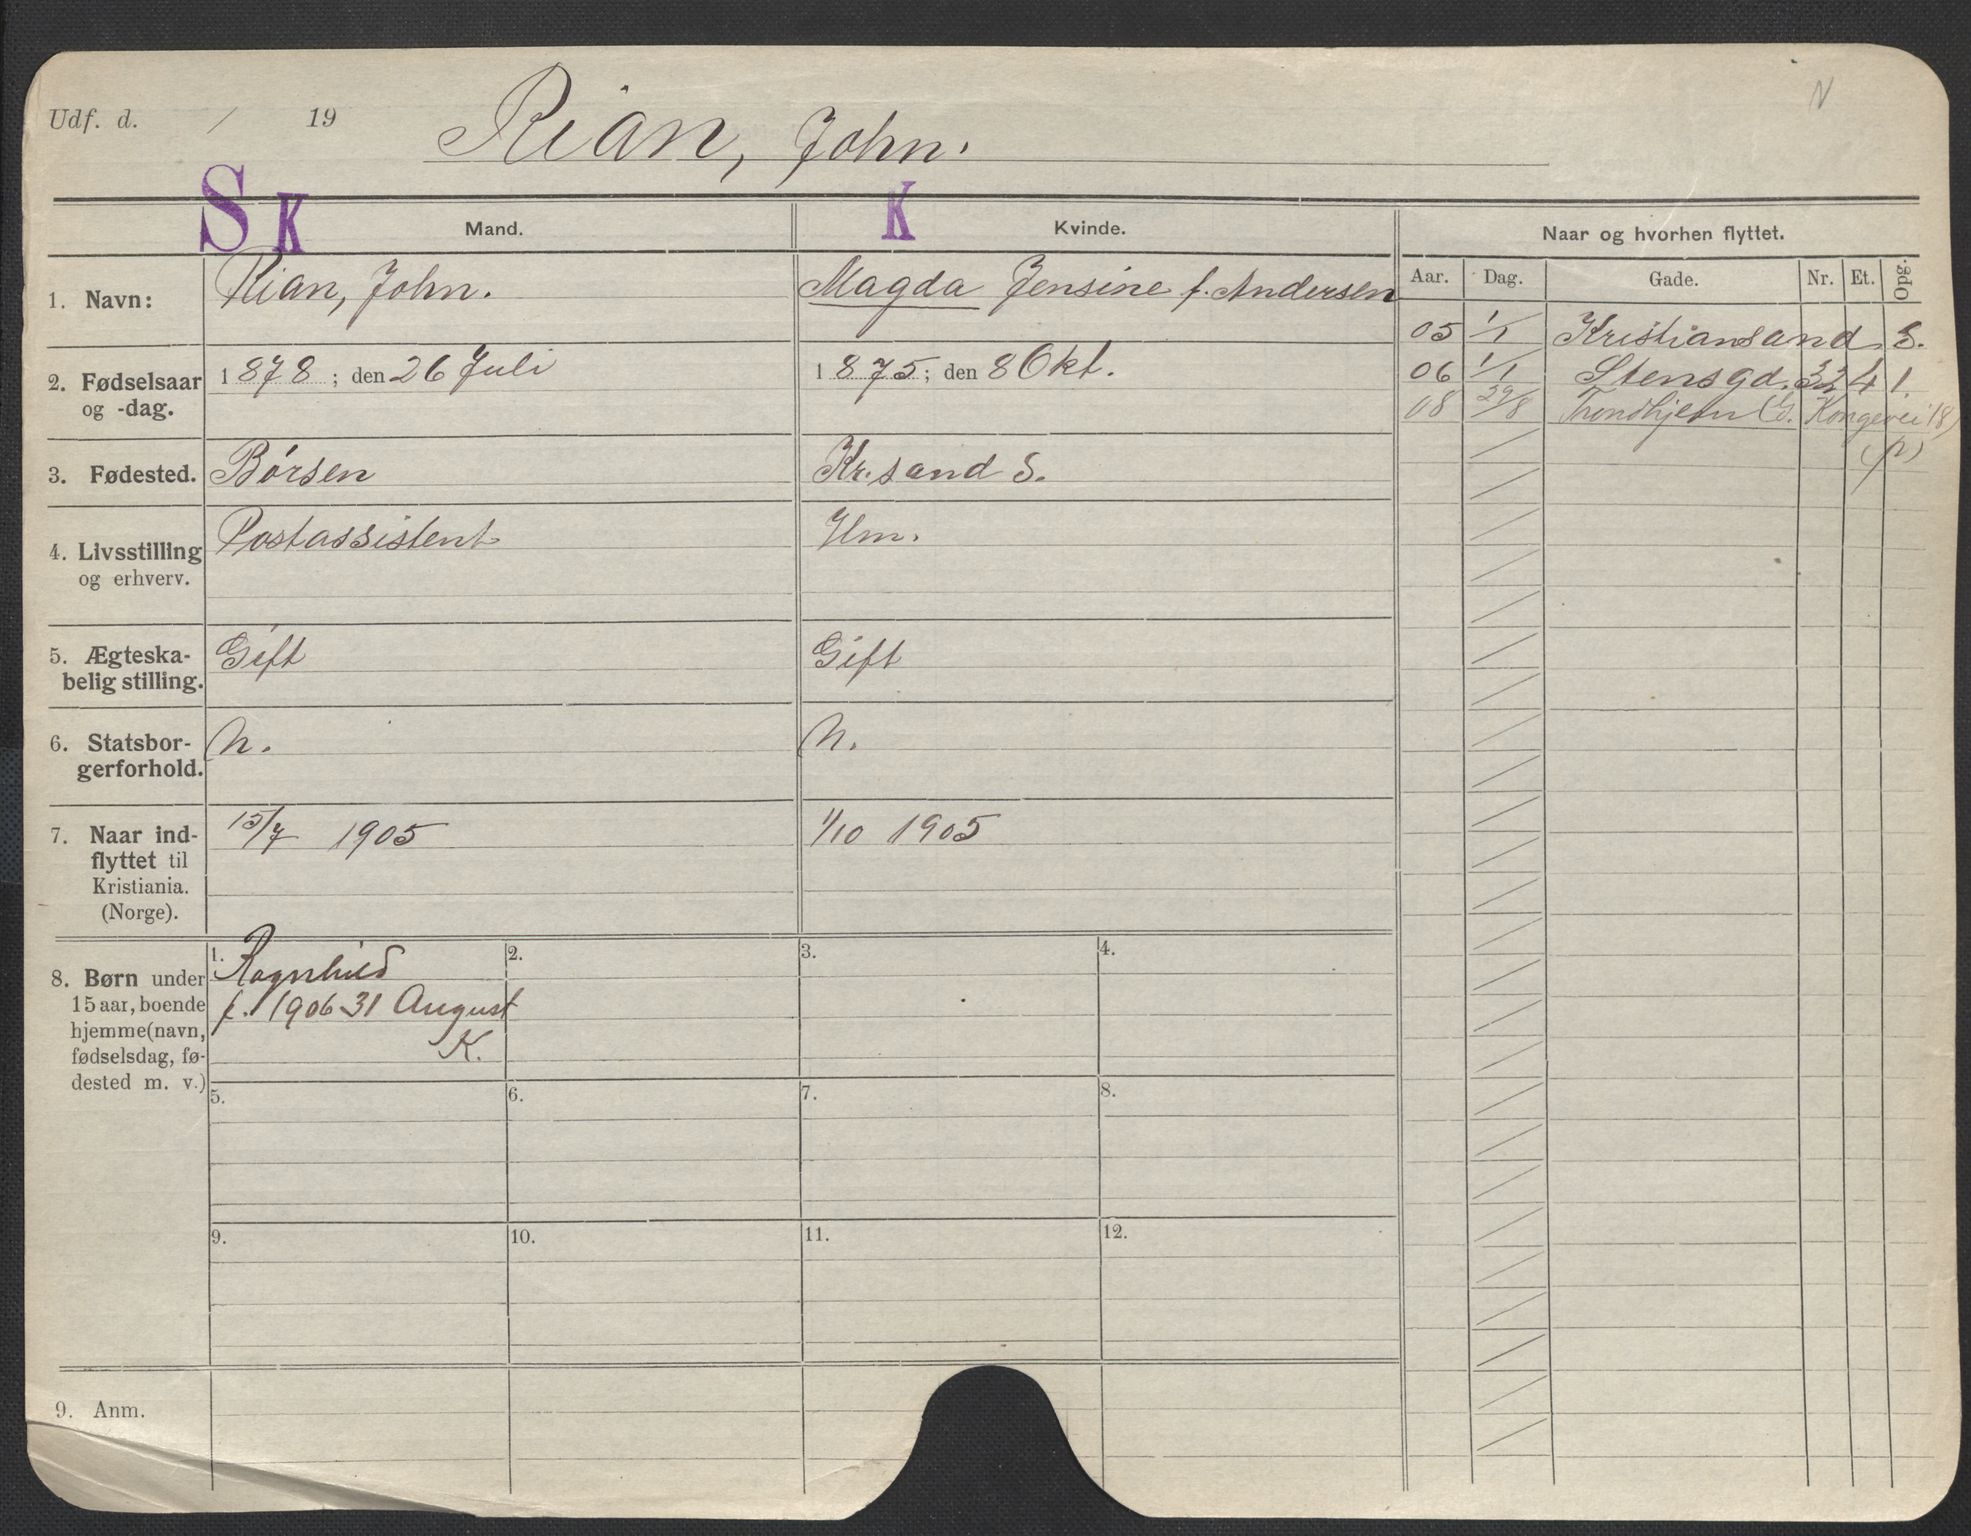 Udf. d. / 19
Rian, John.
N
S K
K
Mand.
Kvinde.
Naar og hvorhen flyttet.
Aar. Dag. Gade. Nr. Et. Opg.
1. Navn:
Rian, John.
Magda Jensine f. Andersen
05 1/1 Kristiansand S.
06 1/1 Stensgd. 32 4 1.
08 29/8 Trondhjem (G. Kongevei 18)
(p)
2. Fødselsaar
og -dag.
1878; den 26 Juli
1875; den 8 Okt.
3. Fødested.
Børsen
Kr.sand S.
4. Livsstilling
og erhverv.
Postassistent
Hm.
5. Ægteska-
belig stilling.
Gift
Gift
6. Statsbor-
gerforhold.
n.
n.
7. Naar ind-
flyttet til
Kristiania.
(Norge).
15/7 1905
1/10 1905
8. Børn under
15 aar, boende
hjemme (navn,
fødselsdag, fø-
dested m. v.)
1. Ragnhild
f. 1906 31 August
K.
2.
3.
4.
5.
6.
7.
8.
9.
10.
11.
12.
9. Anm.